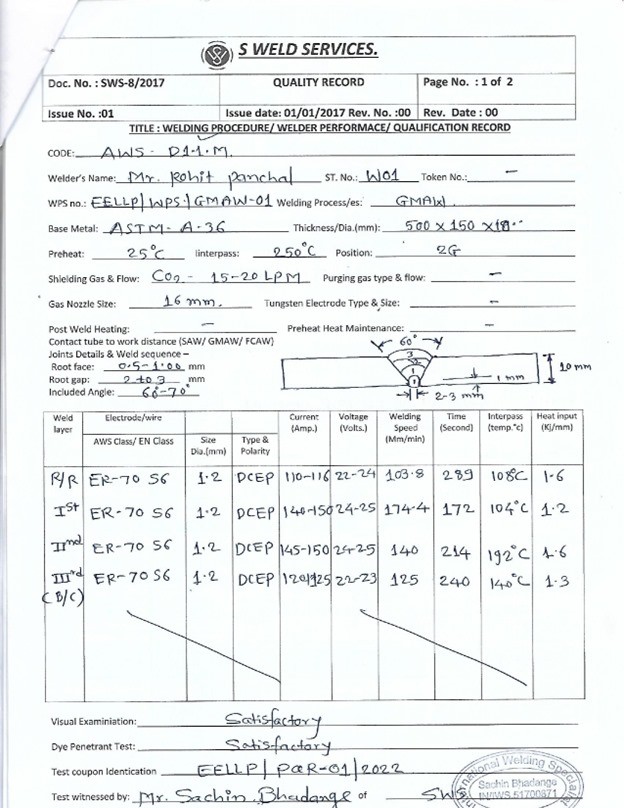 S WELD SERVICES.
Doc. No. : SWS-8/2017 QUALITY RECORD Page No. : 1 of 2
Issue No. :01 Issue date: 01/01/2017 Rev. No. :00 Rev. Date : 00
TITLE : WELDING PROCEDURE/ WELDER PERFORMACE/ QUALIFICATION RECORD
CODE: AWS- D1.1.M.
Welder's Name: Mr. Rohit Panchal ST. No.: W01 Token No.: —
WPS no.: EELLP/WPS/GMAW-01 Welding Process/es: GMAW
Base Metal: ASTM- A-36 Thickness/Dia.(mm): 500 x 150 x
Preheat: 25°C Iinterpass: 250°C Position: 2G
Shielding Gas & Flow: CO2 - 15-20 LPM Purging gas type & flow: —
Gas Nozzle Size: 16 mm. Tungsten Electrode Type & Size: —
Post Weld Heating: — Preheat Heat Maintenance: —
Contact tube to work distance (SAW/ GMAW/ FCAW)
60°
Joints Details & Weld sequence –
Root face: 0.5-1.00 mm
Root gap: 2 to 3 mm
Included Angle: 60-70°
3
2
1
10 mm
1 mm
2-3 mm
Weld layer Electrode/wire Current (Amp.) Voltage (Volts.) Welding Speed (Mm/min) Time (Second) Interpass (temp.°c) Heat input (Kj/mm)
AWS Class/ EN Class Size Dia.(mm) Type & Polarity
R/R ER-70 S6 1.2 DCEP 110-116 22-24 103.8 289 108°C 1.6
Ist ER-70 S6 1.2 DCEP 140-150 24-25 174.4 172 104°C 1.2
IInd ER-70 S6 1.2 DCEP 145-150 24-25 140 214 192°C 1.6
IIIrd ER-70 S6 1.2 DCEP 120/125 22-23 125 240 140°C 1.3
(B/C)
Visual Examiniation: Satisfactory
Dye Penetrant Test: Satisfactory
Test coupon Identication EELLP/PQR-01/2022
Test witnessed by: Mr. Sachin Bhadange of SWS
national Welding Special
Sachin Bhadange
IN/IWS 51700871